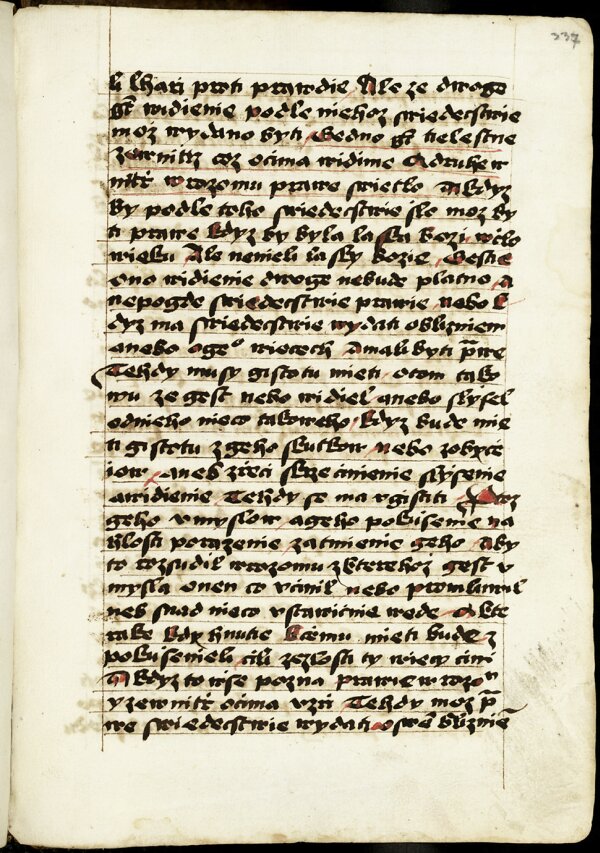 237
li lhari proti prawdie Ale ze dwoge
gest widienie podle niehoz swiedecstwie
moz wydano byti Gedno gest tielestne
zewnitrz coz ocima widime A druhe w
nitrz w rozomu prawe swietlo A kdyz
by podle toho swiedecstwie slo moz by
ti prawe kdyz by byla laska bozi w tilo
wieku Ale nenieli lasky bozie Gestie
ono widienie dwoge nebude platno A
nepogde swiedecstwie prawie nebo k
dyz ma swiedecstwie wydati o blizniem
anebo o geo wiecech Amali byti prwe
Tehdy musy gistotu mieti otom tako
wu ze gest nebo widiel anebo slysel
odnieho nieco takoweho kdyz bude mie
ti gistotu z geho skutkow nebo z obyce
iow aneb z reci skrze cinienie slysenie
a widienie Tehdy se ma vgistiti
geho vmyslow a geho pokusenie na
hlosti porazenie zatmienie geho Aby
to rozsudil w rozomu z kterehoz gest v
mysla onen co vcinil nebo promluwil
neb snad nieco vstawicnie wede A kte
rake kdy hnutie k cemu mieti bude z
pokusenieli cili ze zlosti ty wiecy cini
A kdyz to wse pozna prawie w rozo
y zewnitrz ocima vzri Tehdy moz pra
we swiedecstwie wydati o swem bliznie